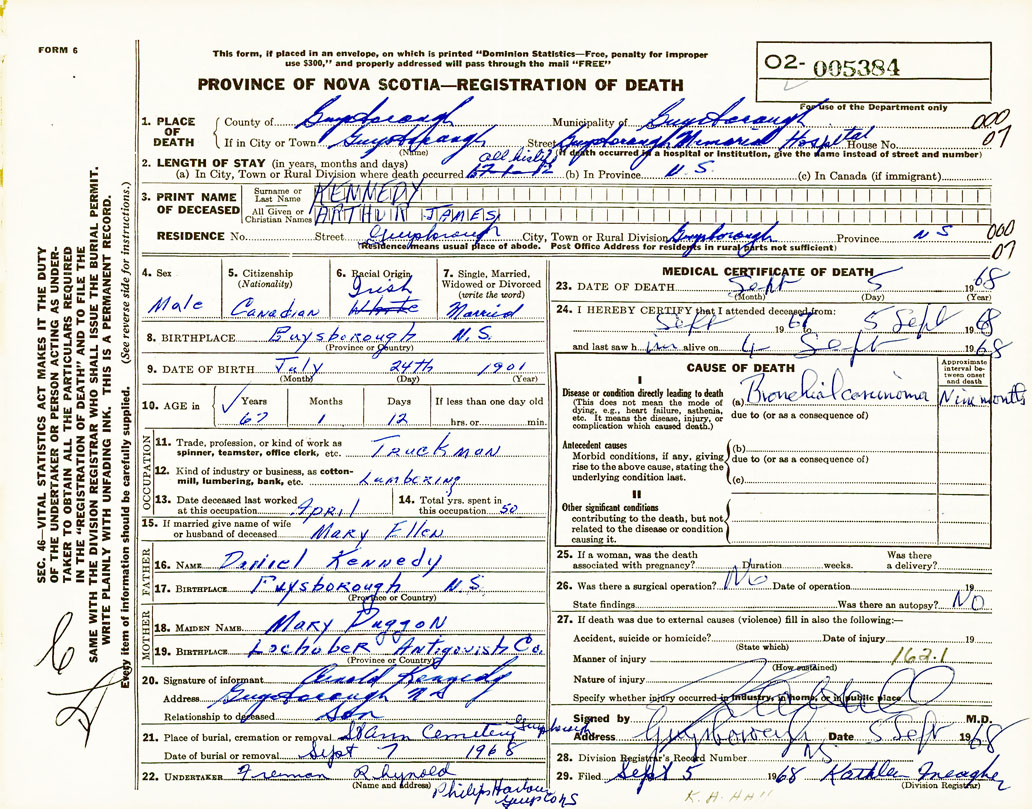 FORM 6
This form, if placed in an envelope, on which is printed "Dominion Statistics—Free, penalty for improper
use $300," and properly addressed will pass through the mail "FREE"
PROVINCE OF NOVA SCOTIA—REGISTRATION OF DEATH
02- 005384
For use of the Department only
000
07
1. PLACE OF DEATH
County of Guysborough Municipality of Guysborough
If in City or Town Guysborough Street Guysborough Memorial Hospital House No.
(Name) (If death occurred in a hospital or institution, give the name instead of street and number)
2. LENGTH OF STAY (in years, months and days) all his life
(a) In City, Town or Rural Division where death occurred 67-1-12 (b) In Province N.S. (c) In Canada (if immigrant)
3. PRINT NAME OF DECEASED
Surname or Last Name KENNEDY
All Given or Christian Names ARTHUR JAMES
RESIDENCE No. Street Guysborough City, Town or Rural Division Guysborough Province NS
(Residence means usual place of abode. Post Office Address for residents in rural parts not sufficient)
000
07
4. Sex
Male
5. Citizenship
(Nationality)
Canadian
6. Racial Origin
Irish
White
7. Single, Married,
Widowed or Divorced
(write the word)
Married
8. BIRTHPLACE Guysborough N.S.
(Province or Country)
9. DATE OF BIRTH July 24th 1901
(Month) (Day) (Year)
10. AGE in Years Months Days If less than one day old
67 1 12 hrs. or min.
OCCUPATION
11. Trade, profession, or kind of work as
spinner, teamster, office clerk, etc. Truckman
12. Kind of industry or business, as cotton-
mill, lumbering, bank, etc. Lumbering
13. Date deceased last worked
at this occupation April
14. Total yrs. spent in
this occupation 50
15. If married give name of wife
or husband of deceased Mary Ellen
FATHER
16. NAME Daniel Kennedy
17. BIRTHPLACE Guysborough N.S.
(Province or Country)
MOTHER
18. MAIDEN NAME Mary Duggon
19. BIRTHPLACE Lochaber Antigonish Co.
(Province or Country)
20. Signature of informant Kennedy
Address Guysborough NS
Relationship to deceased Son
21. Place of burial, cremation or removal St Ann Cemetery Guysborough
Date of burial or removal Sept 7 1968
22. UNDERTAKER Freeman Rhynold
(Name and address) Philips Harbour
Guys Co NS
MEDICAL CERTIFICATE OF DEATH
23. DATE OF DEATH Sept 5 1968
(Month) (Day) (Year)
24. I HEREBY CERTIFY that I attended deceased from:
Sept 1967 to 5 Sept 1968
and last saw him alive on 4 Sept 1968
CAUSE OF DEATH
Approximate
interval be-
tween onset
and death
I
Disease or condition directly leading to death
(This does not mean the mode of
dying, e.g., heart failure, asthenia,
etc. It means the disease, injury, or
complication which caused death.)
(a) Bronchial carcinoma Nine months
due to (or as a consequence of)
Antecedent causes
Morbid conditions, if any, giving
rise to the above cause, stating the
underlying condition last.
(b)
due to (or as a consequence of)
(c)
II
Other significant conditions
contributing to the death, but not
related to the disease or condition
causing it.
25. If a woman, was the death
associated with pregnancy? Duration weeks. Was there
a delivery?
26. Was there a surgical operation? No Date of operation 19
State findings Was there an autopsy? No
27. If death was due to external causes (violence) fill in also the following:—
Accident, suicide or homicide? Date of injury 19
(State which)
Manner of injury 162.1
(How sustained)
Nature of injury
Specify whether injury occurred in industry, in home, or in public place
Signed by M.D.
Address Guysborough NS Date 5 Sept 1968
28. Division Registrar's Record Number
29. Filed Sept 5 1968 Kathleen Meagher
(Division Registrar)
K. A. Hall
SEC. 46—VITAL STATISTICS ACT MAKES IT THE DUTY
OF THE UNDERTAKER OR PERSON ACTING AS UNDER-
TAKER TO OBTAIN ALL THE PARTICULARS REQUIRED
IN THE "REGISTRATION OF DEATH" AND TO FILE THE
SAME WITH THE DIVISION REGISTRAR WHO SHALL ISSUE THE BURIAL PERMIT.
WRITE PLAINLY WITH UNFADING INK. THIS IS A PERMANENT RECORD.
Every item of information should be carefully supplied. (See reverse side for instructions.)